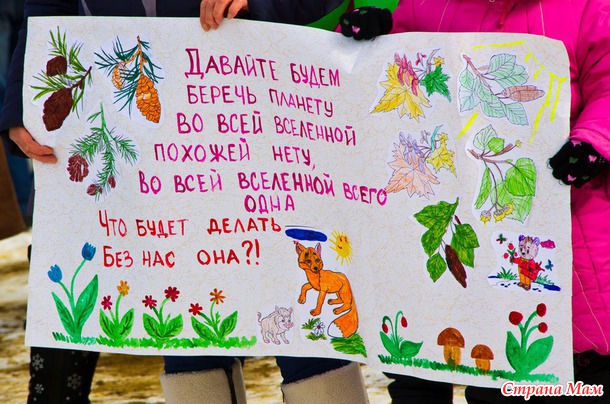 Давайте будем
беречь планету
во всей вселенной
похожей нету,
во всей вселенной всего
одна
Что будет делать
без нас она?!
Страна Мам